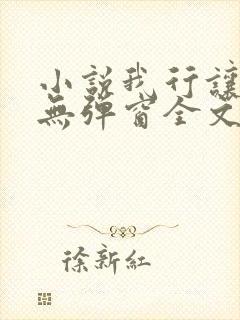 小說我行讓
無彈窗全文
徐新紅